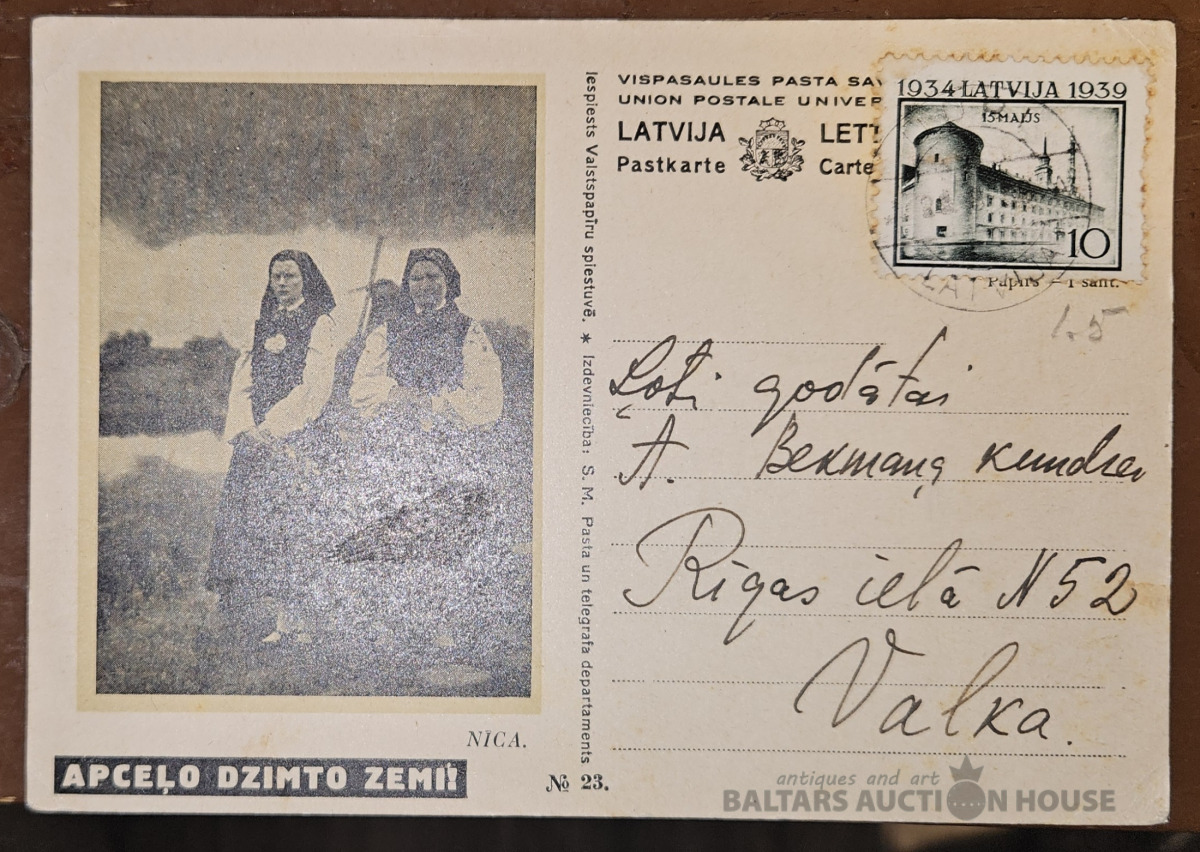 VISPASAULES PASTA SA
UNION POSTALE UNIVER
LATVIJA LETT
Pastkarte Carte
1934 LATVIJA 1939
15 MAIJS
10
LATVIJA
Papīrs – 1 sant.
1.5
Ļoti godātai
A. Bekmaņa kundzei
Rīgas ielā N 52
Valka.
Iespiests Valstspapīru spiestuvē. * Izdevniecība: S. M. Pasta un telegrafa departaments
NĪCA.
APCEĻO DZIMTO ZEMI!
№ 23.
antiques and art
BALTARS AUCTION HOUSE